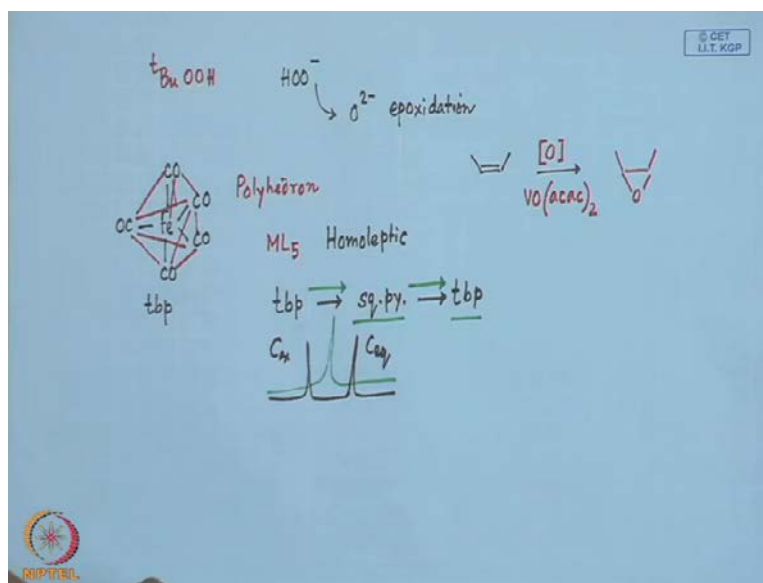 © CET
I.I.T. KGP
tBuOOH
HOO⁻
O²⁻ epoxidation
[O]
VO(acac)₂
O
CO
CO
OC Fe
CO
CO
tbp
Polyhedron
ML₅ Homoleptic
tbp → sq.py. → tbp
C_Ax C_eq
NPTEL